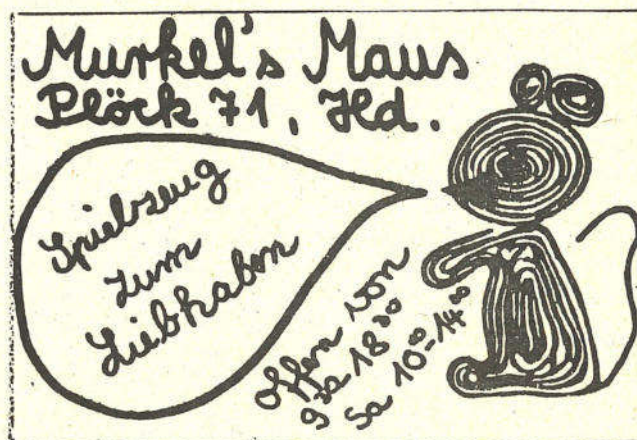 Murkel's Maus
Plöck 71, Hd.
Spielzeug
zum
Liebhaben
Offen von
18³⁰
Sa 10⁰⁰-14⁰⁰